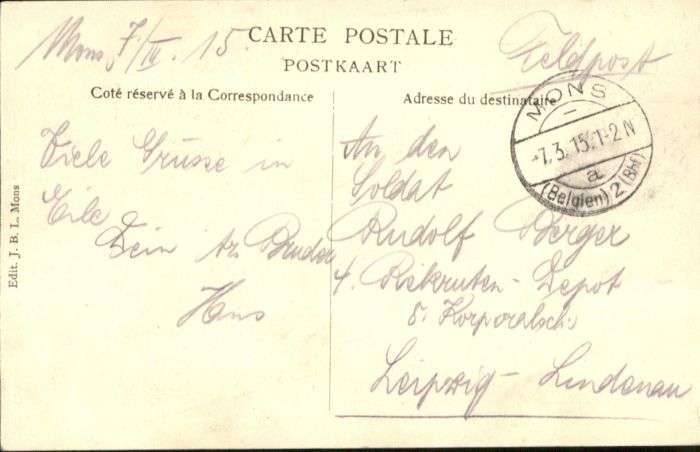 Mons, 7/III. 15.
CARTE POSTALE
POSTKAART
Feldpost
Coté réservé à la Correspondance
Adresse du destinataire
MONS
-7.3.15.1-2N
a
(Belgien) 2 (Bhf)
Viele Grüsse in
Eile
Dein tr. Bruder
Hans
An den
Soldat
Rudolf Berger
4. Rekruten-Depot
8. Korporalsch.
Leipzig-Lindenau
Edit. J. B. L. Mons